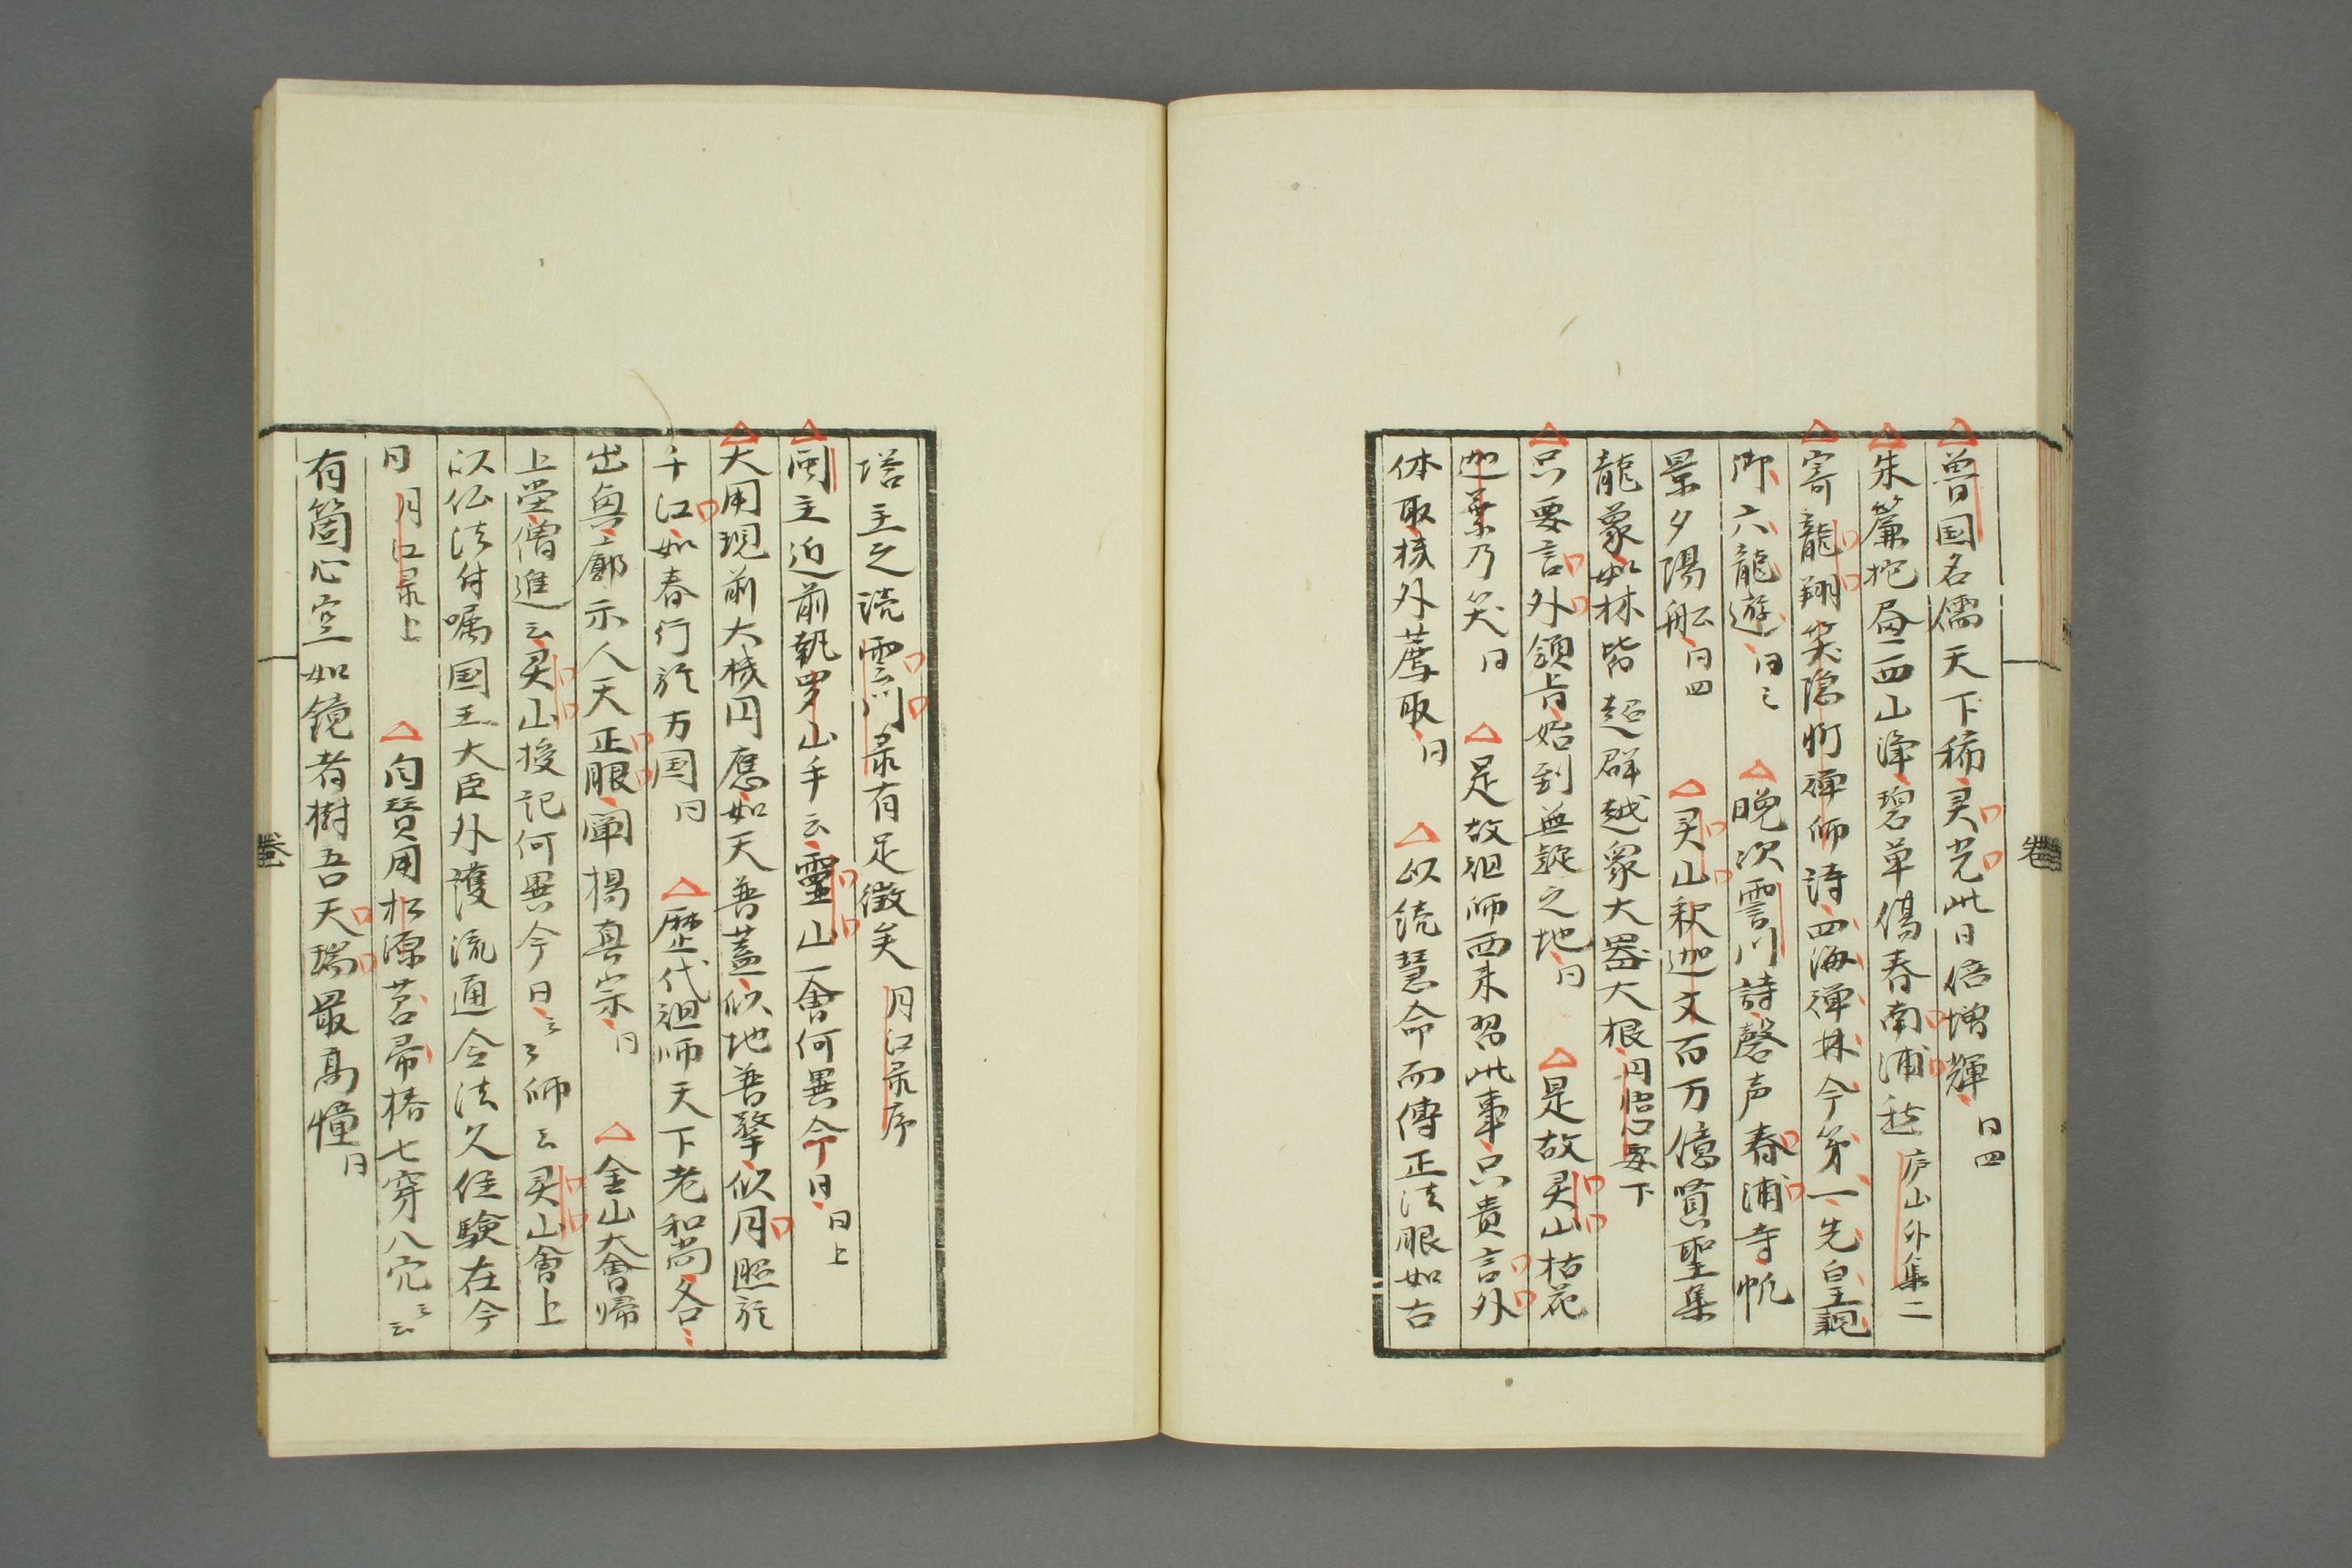 曽国名儒天下稀灵光此日倍増輝 日四
朱簾扼扃西山淳碧草傷春南浦 庐山外集二
寄龍翔笑隠䜣禅师詩四海禅林今第一先皇親
御六龍遊日三 晩次霅川詩磬声春浦寺帆
景夕陽舩日四 灵山釈迦文百万億賢聖集
龍蒙如林皆超群越衆大器大根円悟心要下
只要言外領旨始到無疑之地日 是故灵山拈花
迦葉乃笑日 是故祖师西来習此事只貴言外
体取機外薦取日 以続慧命而傳正法眼如古
塔主之読雲门录有足徴矣 月江录序
閩主迫前執罗山手云靈山一會何異今日日上
大用現前大機円應如天普蓋似地普擎似月照於
千江如春行於万国日 歴代祖师天下老和尚各〻
出輿廓示人天正眼闡揚真宗日 金山大會帰
上堂僧進云灵山授記何異今日云〻师云灵山會上
以仏法付嘱国王大臣外護流通令法久住験在今
日 月江录上 向賛用松源苕帚樁七穿八穴云〻
有箇心空如鏡者樹吾天瑞最高幢日
卷
卷